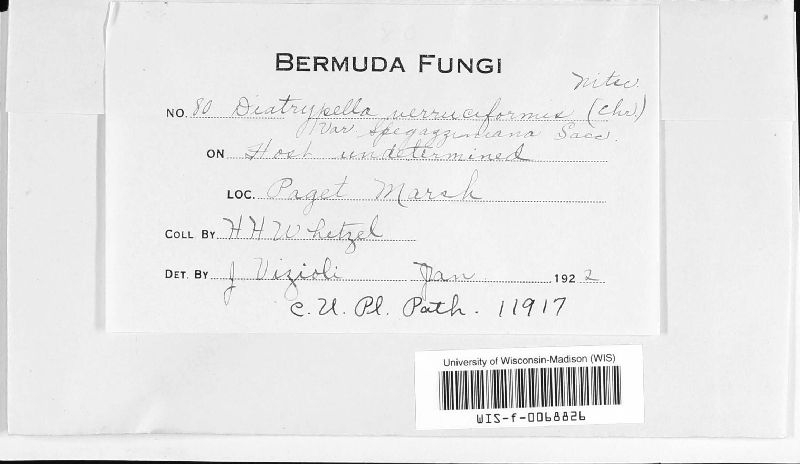 BERMUDA FUNGI
Nitsc.
NO. 80 Diatrypella verruciformis (Ehr)
Var. Spegazziniana Sacc.
ON Host undetermined
LOC. Paget Marsh
COLL BY H H Whetzel
DET. BY J Vizioli Jan 1922
C. U. Pl. Path. 11917
University of Wisconsin-Madison (WIS)
WIS-f-0068826